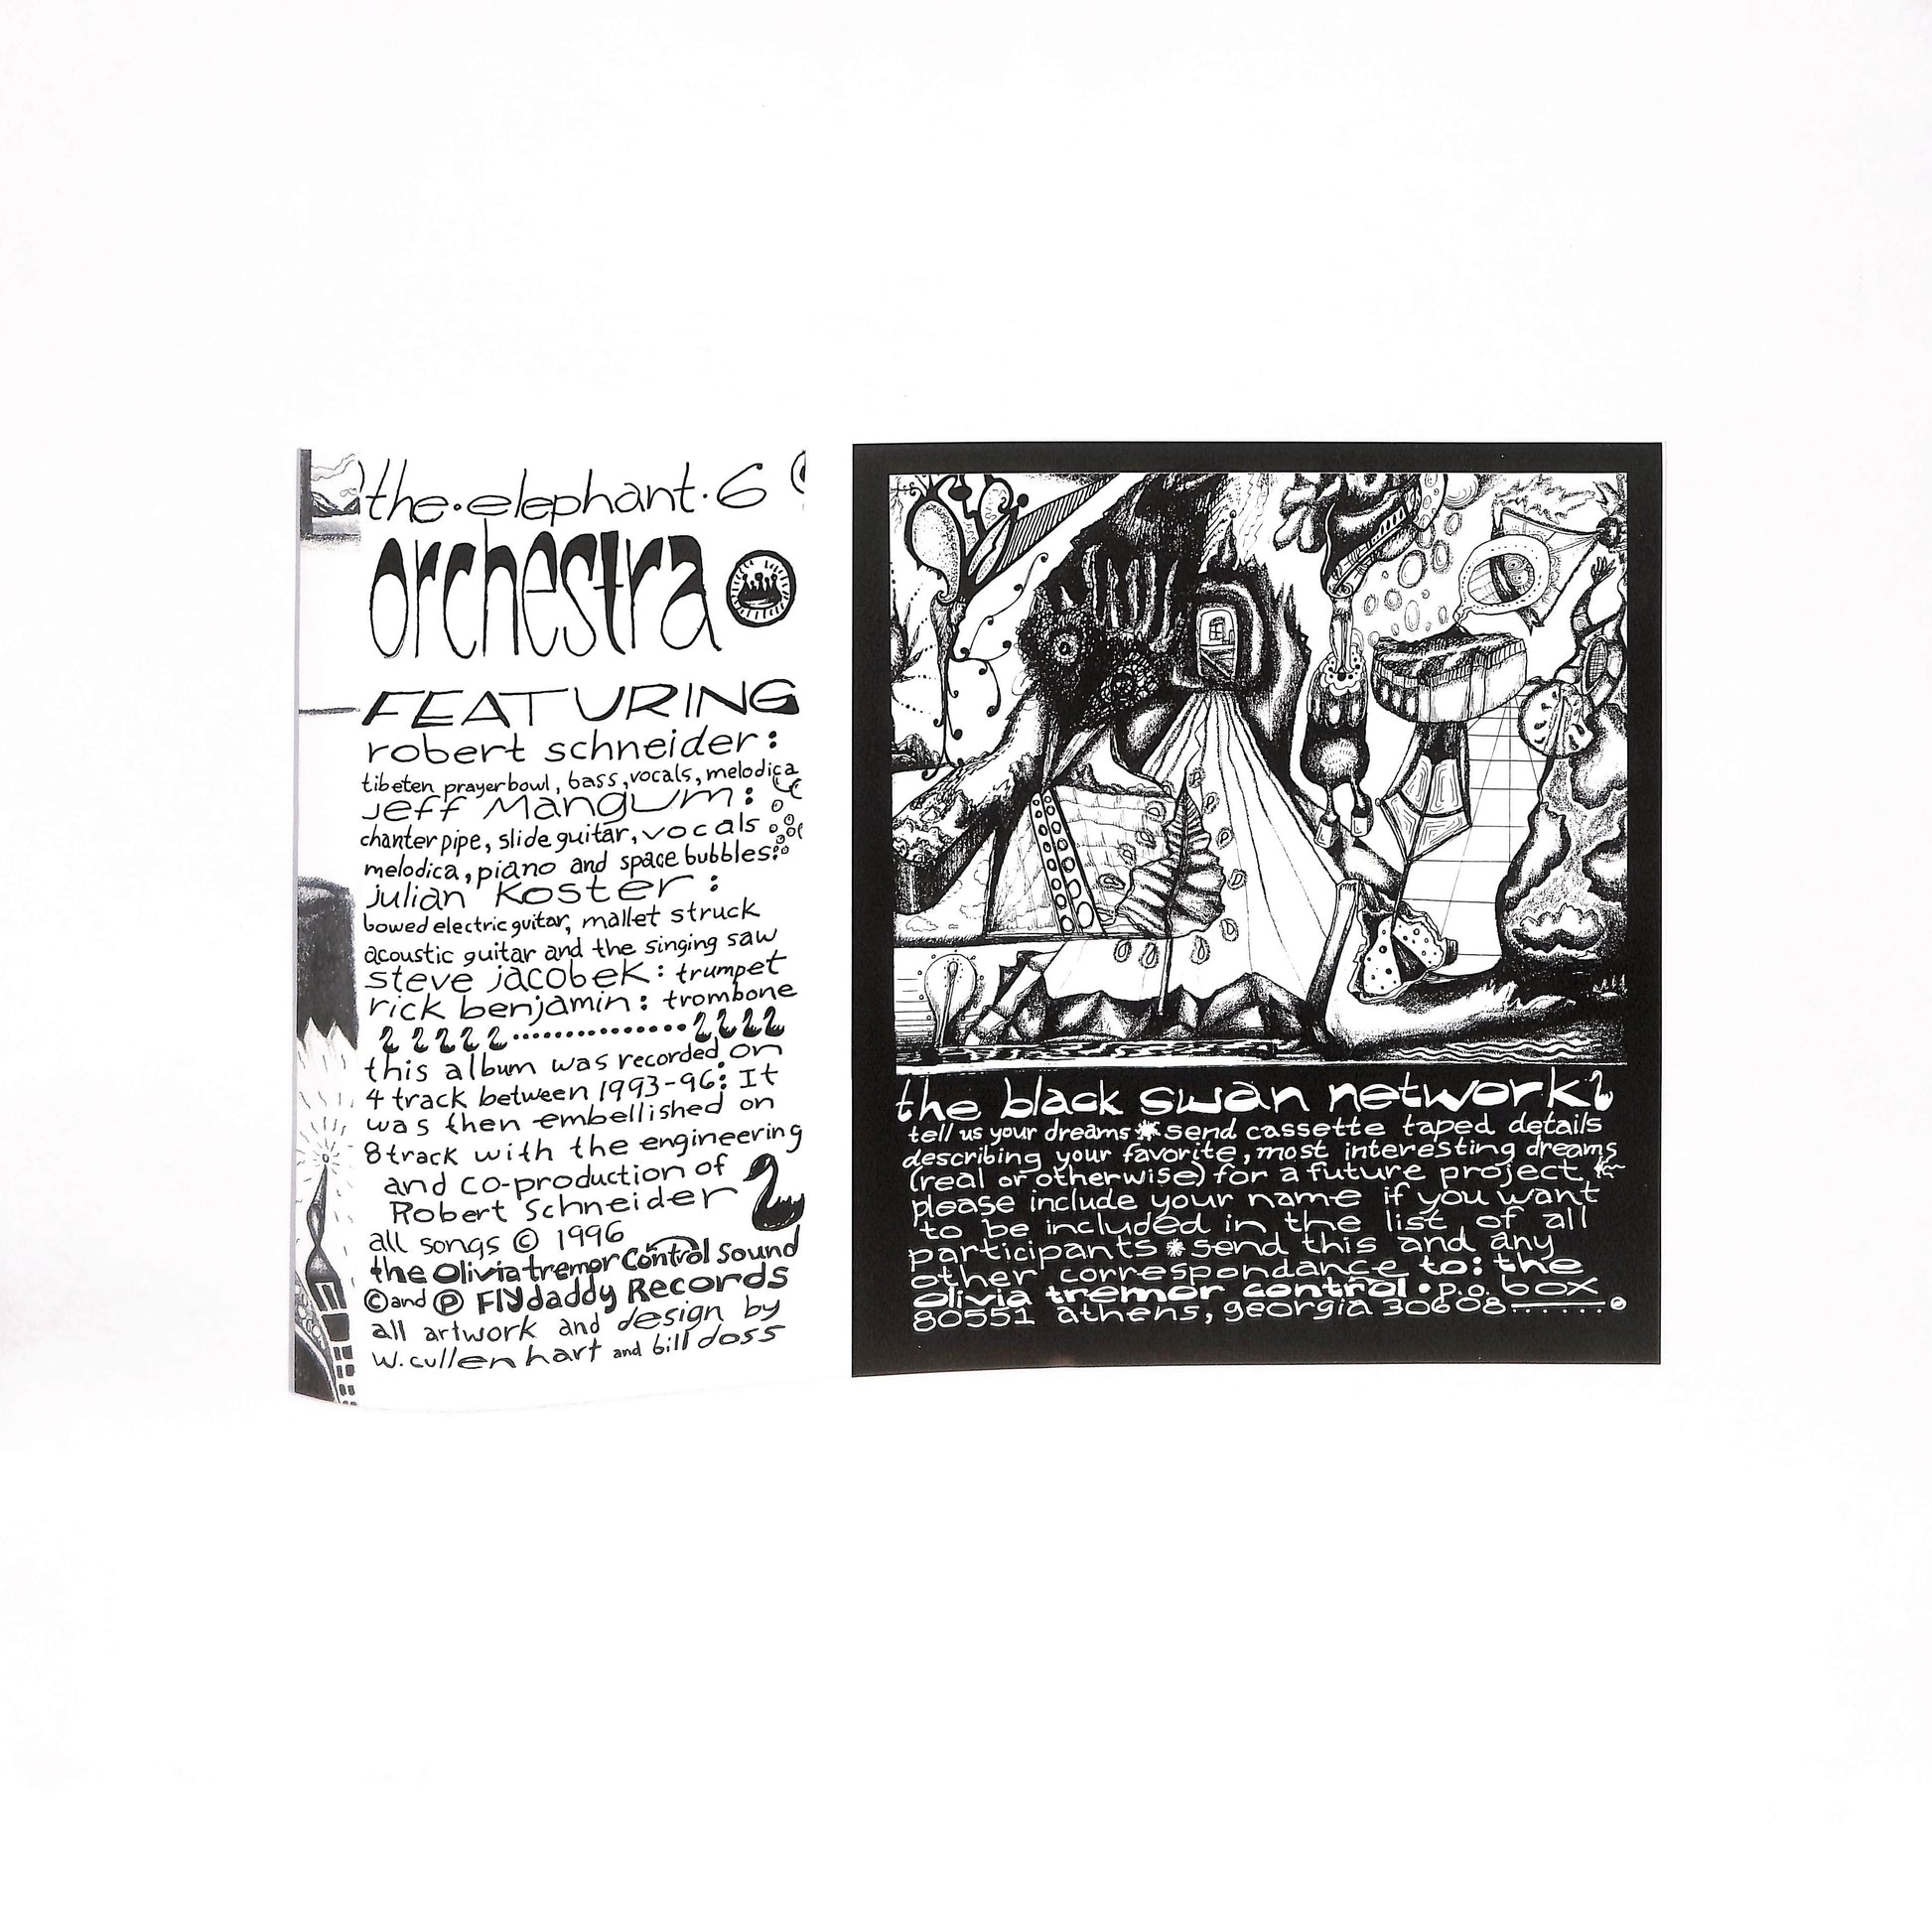 the·elephant·6
orchestra
FEATURING
robert schneider:
tibeten prayerbowl, bass, vocals, melodica
jeff Mangum:
chanter pipe, slide guitar, vocals
melodica, piano and space bubbles:
julian Koster:
bowed electric guitar, mallet struck
acoustic guitar and the singing saw
steve jacobek: trumpet
rick benjamin: trombone
this album was recorded on
4 track between 1993-96: It
was then embellished on
8 track with the engineering
and co-production of
Robert Schneider
all songs © 1996
the Olivia tremor Control Sound
© and ℗ FlYdaddy Records
all artwork and design by
w. cullen hart and bill doss
the black swan network
tell us your dreams * send cassette taped details
describing your favorite, most interesting dreams
(real or otherwise) for a future project
please include your name if you want
to be included in the list of all
participants * send this and any
other correspondance to: the
olivia tremor control • p.o. box
80551 athens, georgia 30608